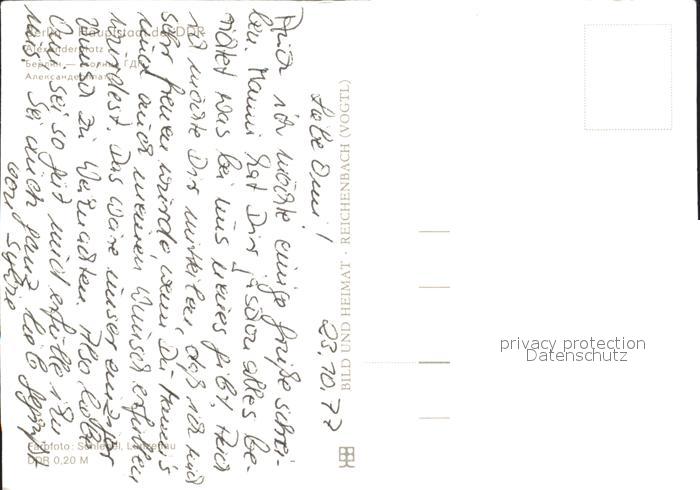 Berlin — Hauptstadt der DDR
Alexanderplatz
Берлин —
Александерплац
Liebe Omi!
23.10.77
Auch ich möchte einige Grüße schrei-
ben. Mami hat Dir schon alles be-
richtet was bei uns neues gibt. Auch
ich möchte Dir mitteilen, daß ich mich
sehr freuen würde wenn Du Mami's
und auch meinen Wunsch erfüllen
würdest. Das wäre unser einziger
Wunsch zu Weihnachten. Also liebe
Omi, sei so gut und erfülle ihn
uns. Sei auch ganz lieb gegrüßt
von
BILD UND HEIMAT · REICHENBACH (VOGTL)
Farbfoto: Schlegel,
DDR 0,20 M
privacy protection
Datenschutz